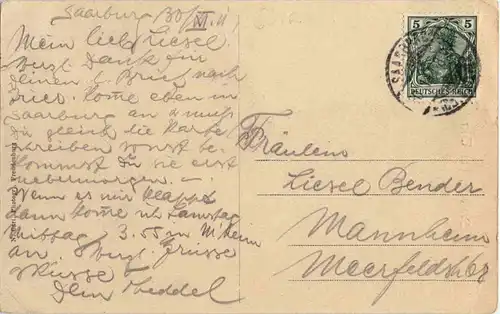 Saarburg 30/VI. 11
Mein lieb Liesel.
Herzl. Dank für
Deinen l. Brief nach
Kome eben in
Saarburg an u muß
Dir gleich die Karte
schreiben sonst be-
kommst Du sie erst
uebermorgen. —
Wenn es mir klappt
dann kome ich Samstag
Mittag 3.05 an M'heim
an. Herzl. Grüsse
Küsse
Dein
5 5
DEUTSCHES REICH
SAARBURG
Fräulein
Liesel Bender
Mannheim
Meerfeldstr 62